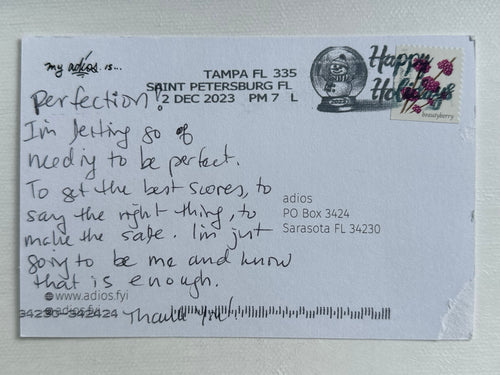 my adios is...
TAMPA FL 335
SAINT PETERSBURG FL
2 DEC 2023 PM 7 L
Happy
Holidays
beautyberry
Perfection!
I'm letting go of
needing to be perfect.
To get the best scores, to
say the right thing, to
make the sale. I'm just
going to be me and know
that is enough.
Thank you!
adios
PO Box 3424
Sarasota FL 34230
www.adios.fyi
adios.fyi
34230-342424